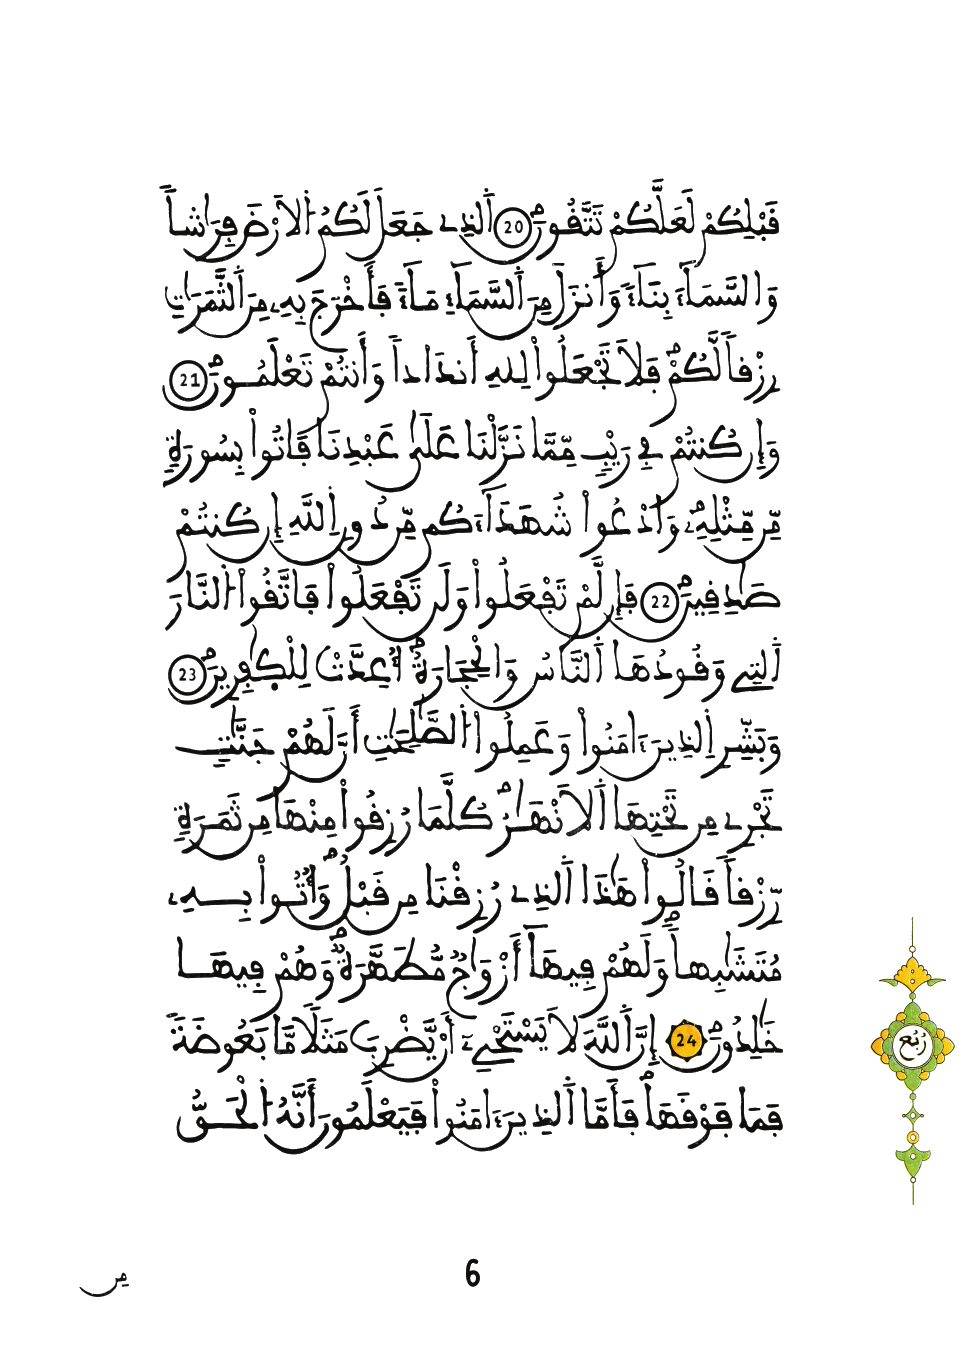 قَبْلِكُمْ لَعَلَّكُمْ تَتَّقُونَ 20 ٱلذِے جَعَلَ لَكُمُ اُ۬لَارْضَ فِرَٰشاٗ
وَالسَّمَآءَ بِنَآءٗ وَأَنزَلَ مِنَ اَ۬لسَّمَآءِ مَآءٗ فَأَخْرَجَ بِهِۦ مِنَ اَ۬لثَّمَرَٰتِ
رِزْقاٗ لَّكُمْۖ فَلَا تَجْعَلُواْ لِلهِ أَندَاداٗ وَأَنتُمْ تَعْلَمُونَۖ 21
وَإِن كُنتُمْ فِے رَيْبٖ مِّمَّا نَزَّلْنَا عَلَىٰ عَبْدِنَا فَاتُواْ بِسُورَةٖ
مِّن مِّثْلِهِۦۖ وَادْعُواْ شُهَدَآءَكُم مِّن دُونِ اِ۬للَّهِ إِن كُنتُمْ
صَٰدِقِينَۖ 22 فَإِن لَّمْ تَفْعَلُواْ وَلَن تَفْعَلُواْ فَاتَّقُواْ اُ۬لنَّارَ
اَ۬لتِے وَقُودُهَا اَ۬لنَّاسُ وَالْحِجَارَةُۖ أُعِدَّتْ لِلْكٰ۪فِرِينَۖ 23
وَبَشِّرِ اِ۬لذِينَ ءَامَنُواْ وَعَمِلُواْ اُ۬لصَّٰلِحَٰتِ أَنَّ لَهُمْ جَنَّٰتٖ
تَجْرِے مِن تَحْتِهَا اَ۬لَانْهَٰرُۖ كُلَّمَا رُزِقُواْ مِنْهَا مِن ثَمَرَةٖ
رِّزْقاٗ قَالُواْ هَٰذَا اَ۬لذِے رُزِقْنَا مِن قَبْلُۖ وَأُتُواْ بِهِۦ
مُتَشَٰبِهاٗۖ وَلَهُمْ فِيهَآ أَزْوَٰجٞ مُّطَهَّرَةٞۖ وَهُمْ فِيهَا
خَٰلِدُونَۖ 24 إِنَّ اَ۬للَّهَ لَا يَسْتَحْيِۦٓ أَنْ يَّضْرِبَ مَثَلاٗ مَّا بَعُوضَةٗ
فَمَا فَوْقَهَاۖ فَأَمَّا اَ۬لذِينَ ءَامَنُواْ فَيَعْلَمُونَ أَنَّهُ اُ۬لْحَقُّ
رُبُع
6
مِن